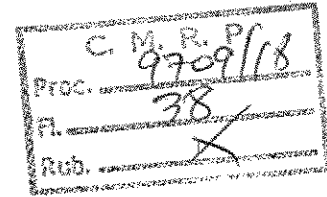 C. M. R. P.
Proc. 9709/18
Fl. 38
Rub.